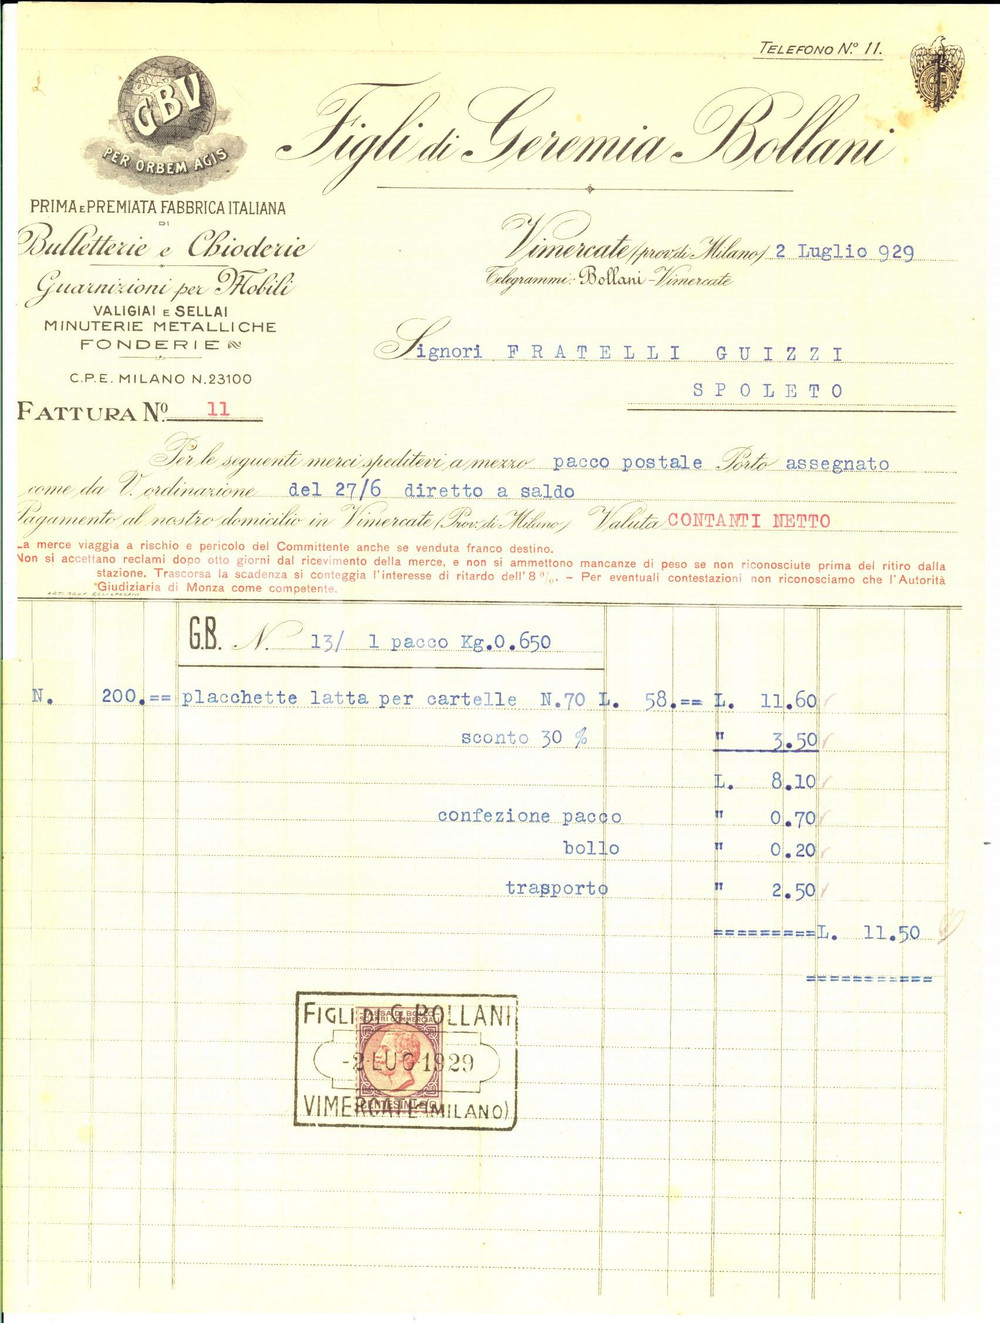 TELEFONO N.º 11.
GBV
PER ORBEM AGIS
Figli di Geremia Bollani
PRIMA E PREMIATA FABBRICA ITALIANA
DI
Bulletterie e Chioderie
Guarnizioni per Mobili
VALIGIAI E SELLAI
MINUTERIE METALLICHE
FONDERIE
C.P.E. MILANO N.23100
FATTURA Nº 11
Vimercate (prov. di Milano) 2 Luglio 929
Telegrammi: Bollani - Vimercate
Signori FRATELLI GUIZZI
SPOLETO
Per le seguenti merci speditevi a mezzo pacco postale Porto assegnato
come da V. ordinazione del 27/6 diretto a saldo
Pagamento al nostro domicilio in Vimercate (Prov. di Milano) Valuta CONTANTI NETTO
La merce viaggia a rischio e pericolo del Committente anche se venduta franco destino.
Non si accettano reclami dopo otto giorni dal ricevimento della merce, e non si ammettono mancanze di peso se non riconosciute prima del ritiro dalla
stazione. Trascorsa la scadenza si conteggia l'interesse di ritardo dell'8 %. - Per eventuali contestazioni non riconosciamo che l'Autorità
Giudiziaria di Monza come competente.
G.B. N. 13/ 1 pacco Kg.0.650
N. 200.== placchette latta per cartelle N.70 L. 58.== L. 11.60
sconto 30 % " 3.50
L. 8.10
confezione pacco " 0.70
bollo " 0.20
trasporto " 2.50
=========L. 11.50
===========
FIGLI DI G. BOLLANI
TASSA DI BOLLO
SCAMBI COMMERCIALI
-2 LUG 1929
VIMERCATE (MILANO)